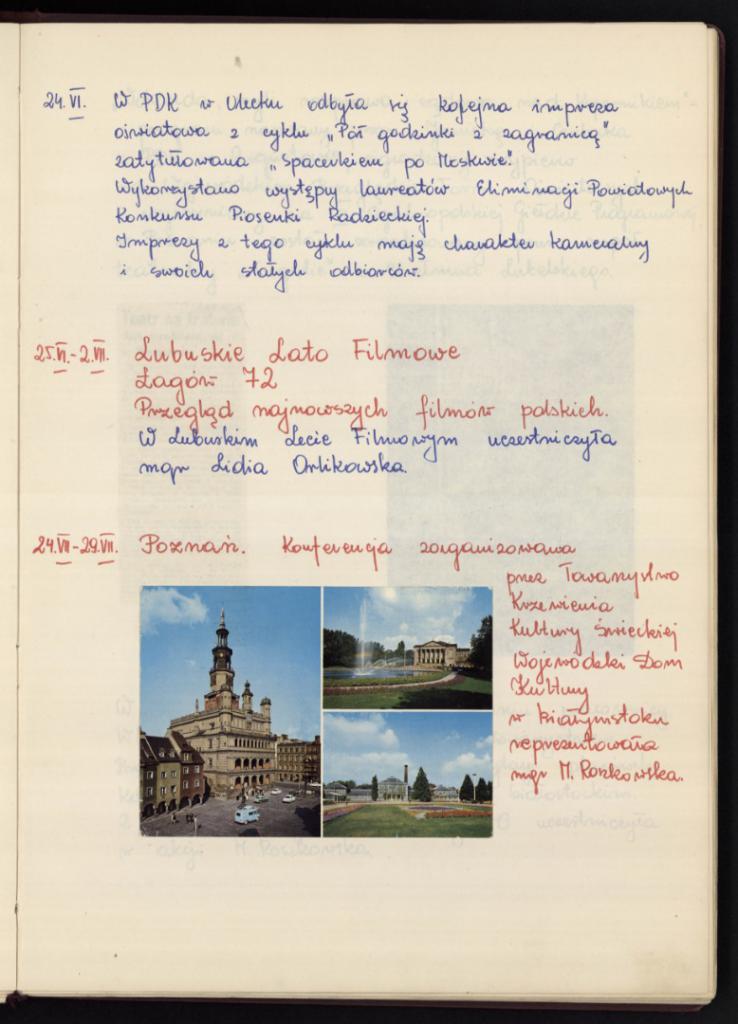 24.VI. W PDK w Olecku odbyła się kolejna impreza
oświatowa z cyklu „Pół godzinki z zagranicą"
zatytułowana „Spacerkiem po Moskwie".
Wykorzystano występy laureatów Eliminacji Powiatowych
Konkursu Piosenki Radzieckiej.
Imprezy z tego cyklu mają charakter kameralny
i swoich stałych odbiorców.
25.VI.-2.VII. Lubuskie Lato Filmowe
Łagów 72
Przegląd najnowszych filmów polskich.
W Lubuskim Lecie Filmowym uczestniczyła
mgr Lidia Orlikowska.
24.VII-29.VII. Poznań. Konferencja zorganizowana
przez Towarzystwo
Krzewienia
Kultury Świeckiej
Wojewódzki Dom
Kultury
w Białymstoku
reprezentowała
mgr M. Roszkowska.